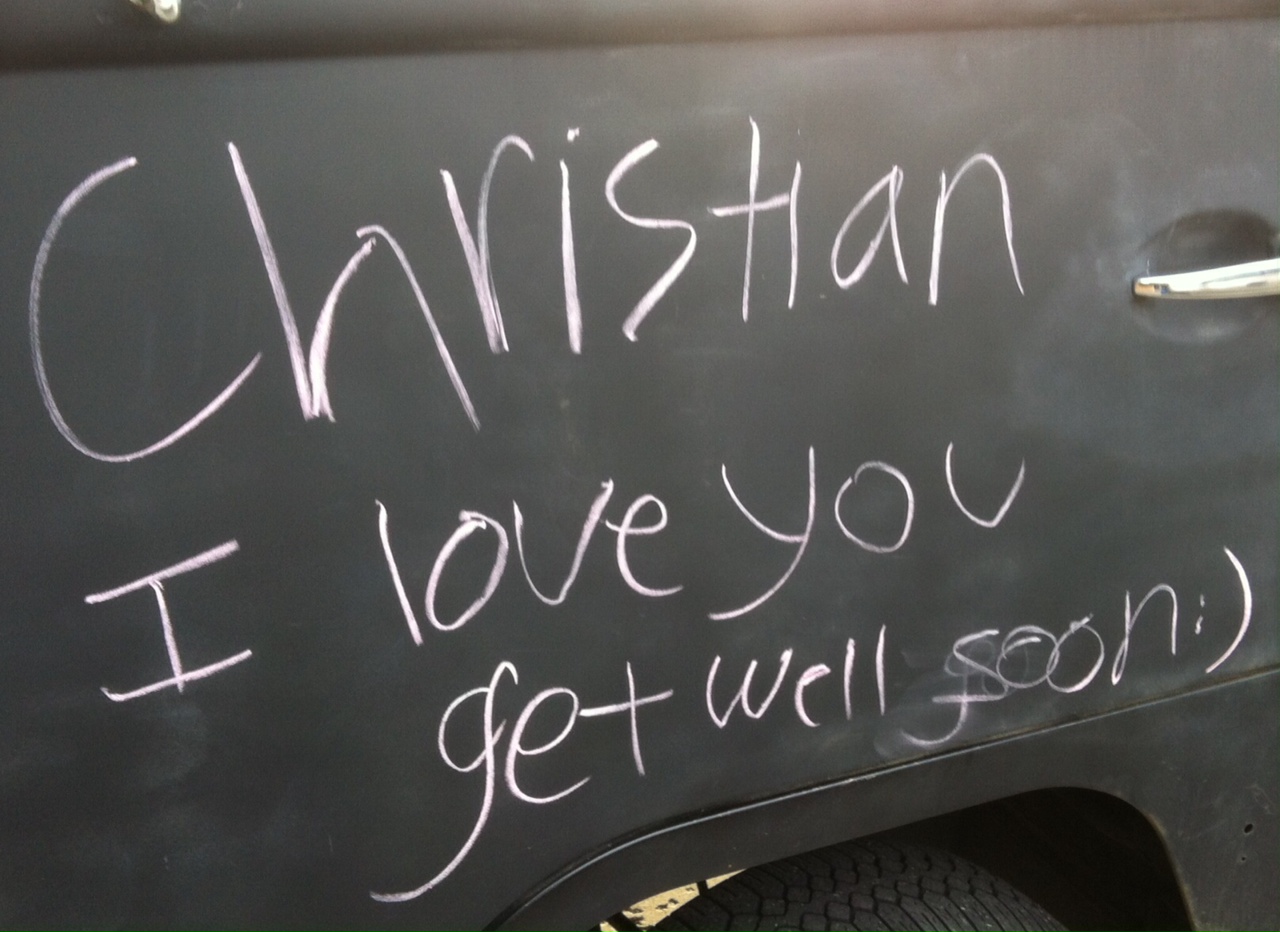 Christian
I love you
get well soon :)